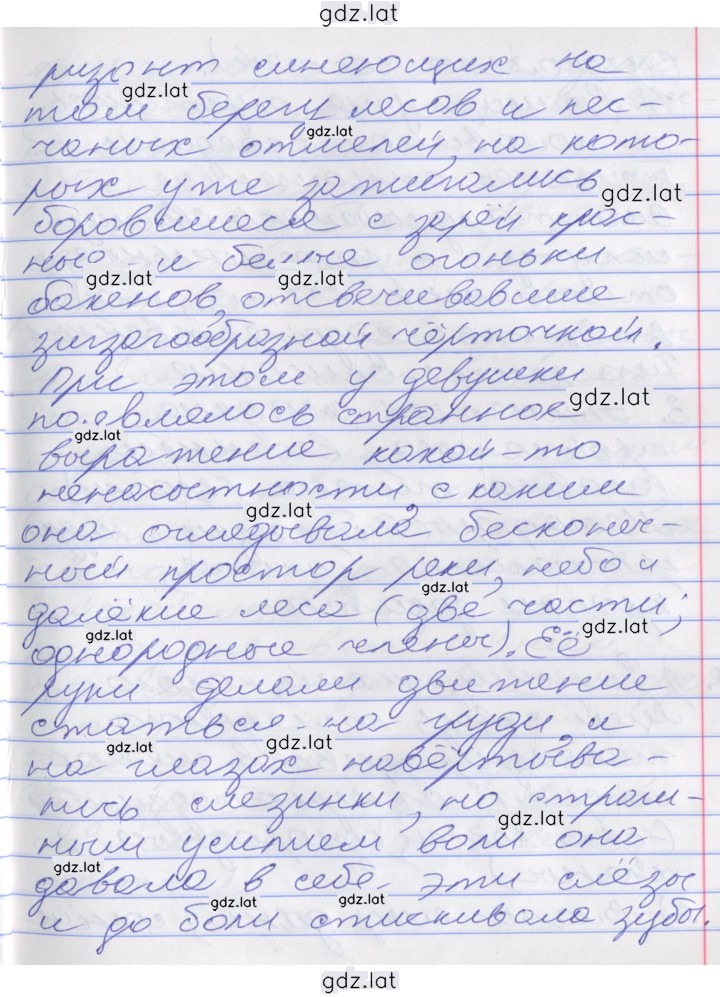 gdz.lat
ризонт синеющих на
том берегу лесов и пес-
чаных отмелей, на кото-
рых уже зажигались
боровшиеся с зарёй крас-
ные и белые огоньки
бакенов, отсвечивавшие
зигзагообразной чёрточкой.
При этом у девушки
появлялось странное
выражение какой-то
ненасытности, с каким
она оглядывала бесконеч-
ный простор реки, небо и
далёкие леса (две части;
однородные члены). Её
руки делали движение
сжаться на груди, и
на глазах навёртыва-
лись слезинки, но страш-
ным усилием воли она
давала в себе эти слёзы
и до боли стискивала зубы.
gdz.lat